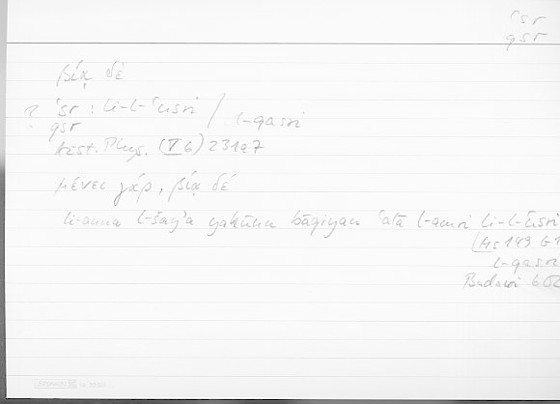 ʿsr
qsr
βίᾳ δέ
? ʿsr : li-l-ʿusri / l-qasri
qsr
Arist. Phys. (V 6) 231a7
μένει γάρ, βίᾳ δέ
li-anna l-šayʾa yakūnu bāqiyan ʿalā l-amri li-l-ʿusri
(Hs 149 G
l-qasri
Badawi 60